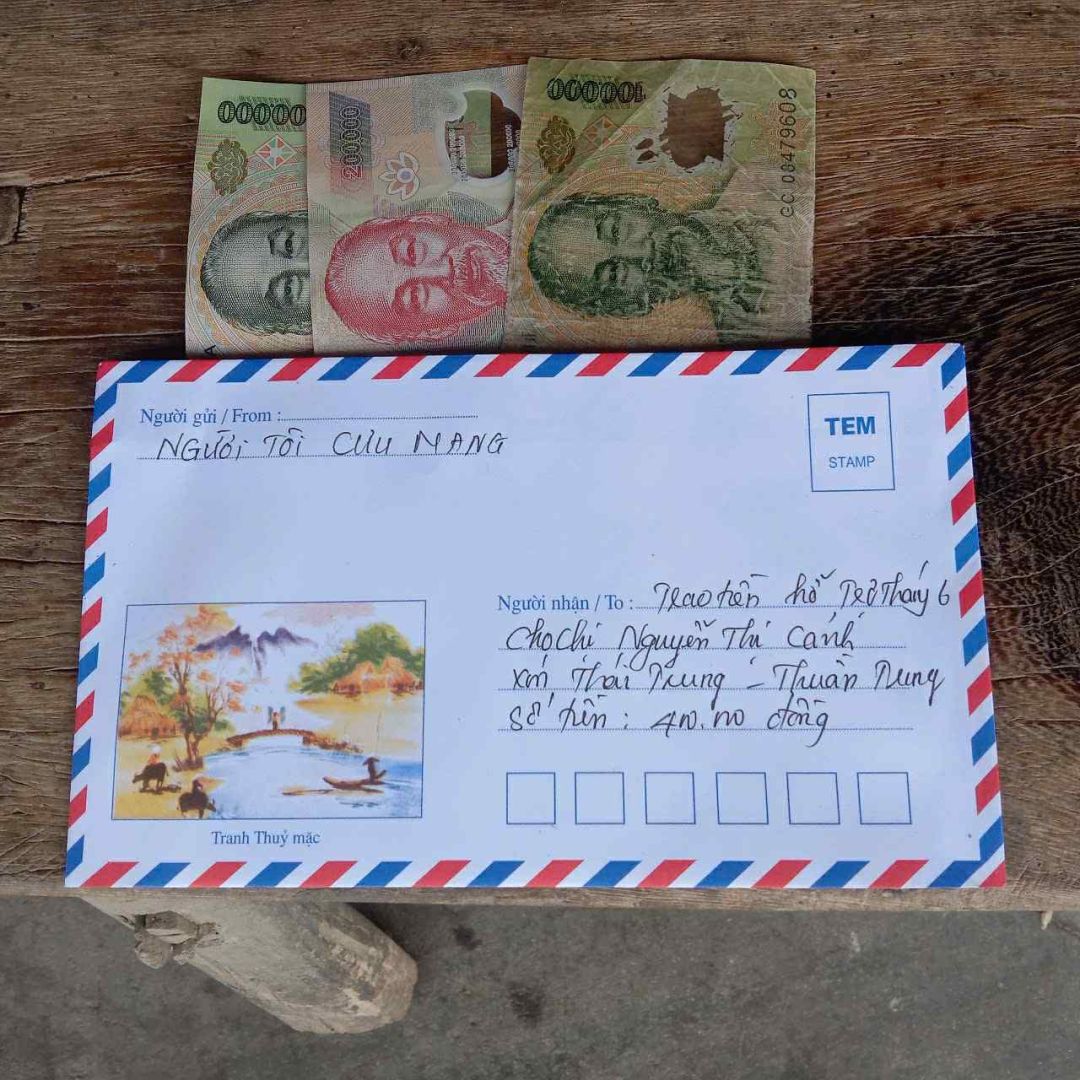 00000
200000
100000
CC 08479608
Người gửi / From :
NGƯỜI TÔI CƯU MANG
TEM
STAMP
Người nhận / To : Trao tiền hỗ trợ Tháng 6
Cho chị Nguyễn Thị Cảnh
xóm Thái Trung - Thuần Trung
Số tiền : 400.000 đồng
Tranh Thuỷ mặc